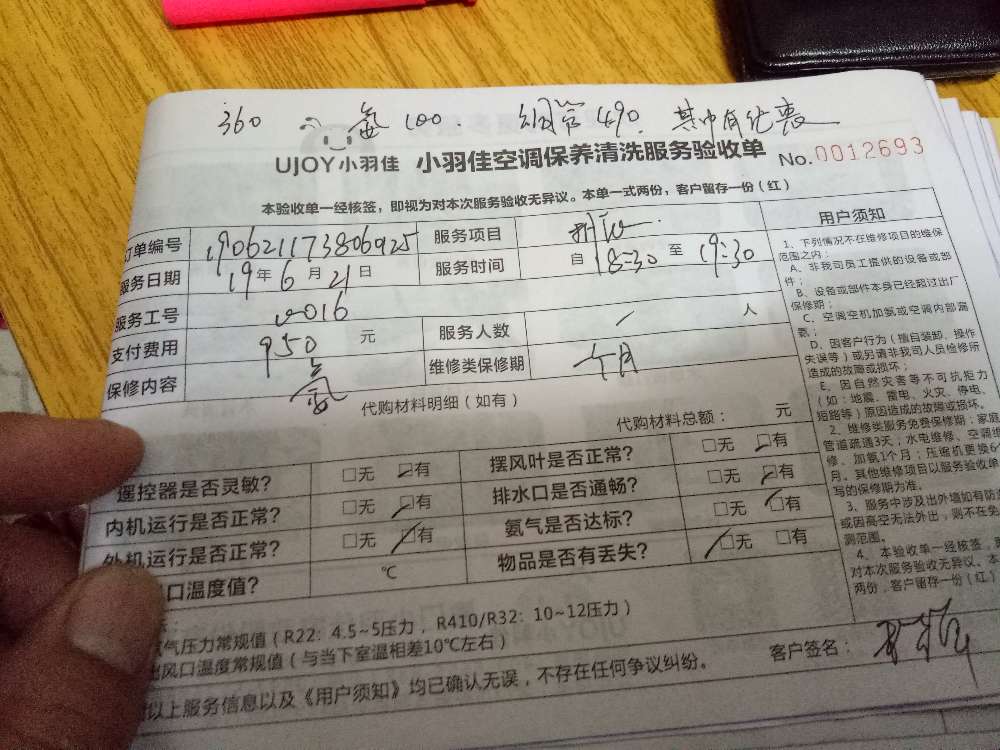 360 氟 100 铜管 490 其中有化丧
UJOY小羽佳 小羽佳空调保养清洗服务验收单 No.0012693
本验收单一经核签，即视为对本次服务验收无异议。本单一式两份，客户留存一份（红）
订单编号 190621173806925 服务项目
服务日期 19年6月21日 服务时间 自18:30至19:30
服务工号 016
支付费用 950 元 服务人数 / 人
保修内容 氟 维修类保修期 个月
代购材料明细（如有） 代购材料总额： 元
遥控器是否灵敏？ □无 □有 摆风叶是否正常？ □无 □有
内机运行是否正常？ □无 □有 排水口是否通畅？ □无 □有
外机运行是否正常？ □无 □有 氨气是否达标？ □无 □有
口温度值？ ℃ 物品是否有丢失？ □无 □有
气压力常规值（R22：4.5~5压力，R410/R32：10~12压力）
出风口温度常规值（与当下室温相差10℃左右）
以上服务信息以及《用户须知》均已确认无误，不存在任何争议纠纷。 客户签名：
用户须知
1、下列情况不在维修项目的维保
范围之内：
A、非我司员工提供的设备或部
件；
B、设备或部件本身已经超过出厂
保修期；
C、空调空机加氨或空调内部漏
氨；
D、因客户行为（擅自装卸、操作
失误等）或另请非我司人员检修所
造成的故障或损坏；
E、因自然灾害等不可抗拒力
（如：地震、雷电、火灾、停电、
短路等）原因造成的故障或损坏。
2、维修类服务免费保修期：家庭
管道疏通3天；水电维修、空调维
修、加氨1个月；压缩机更换6个
月。其他维修项目以服务验收单
写的保修期为准。
3、服务中涉及出外墙如有防
或因高空无法外出，则不在免
测范围。
4、本验收单一经核签，
对本次服务验收无异议。本
两份，客户留存一份（红）